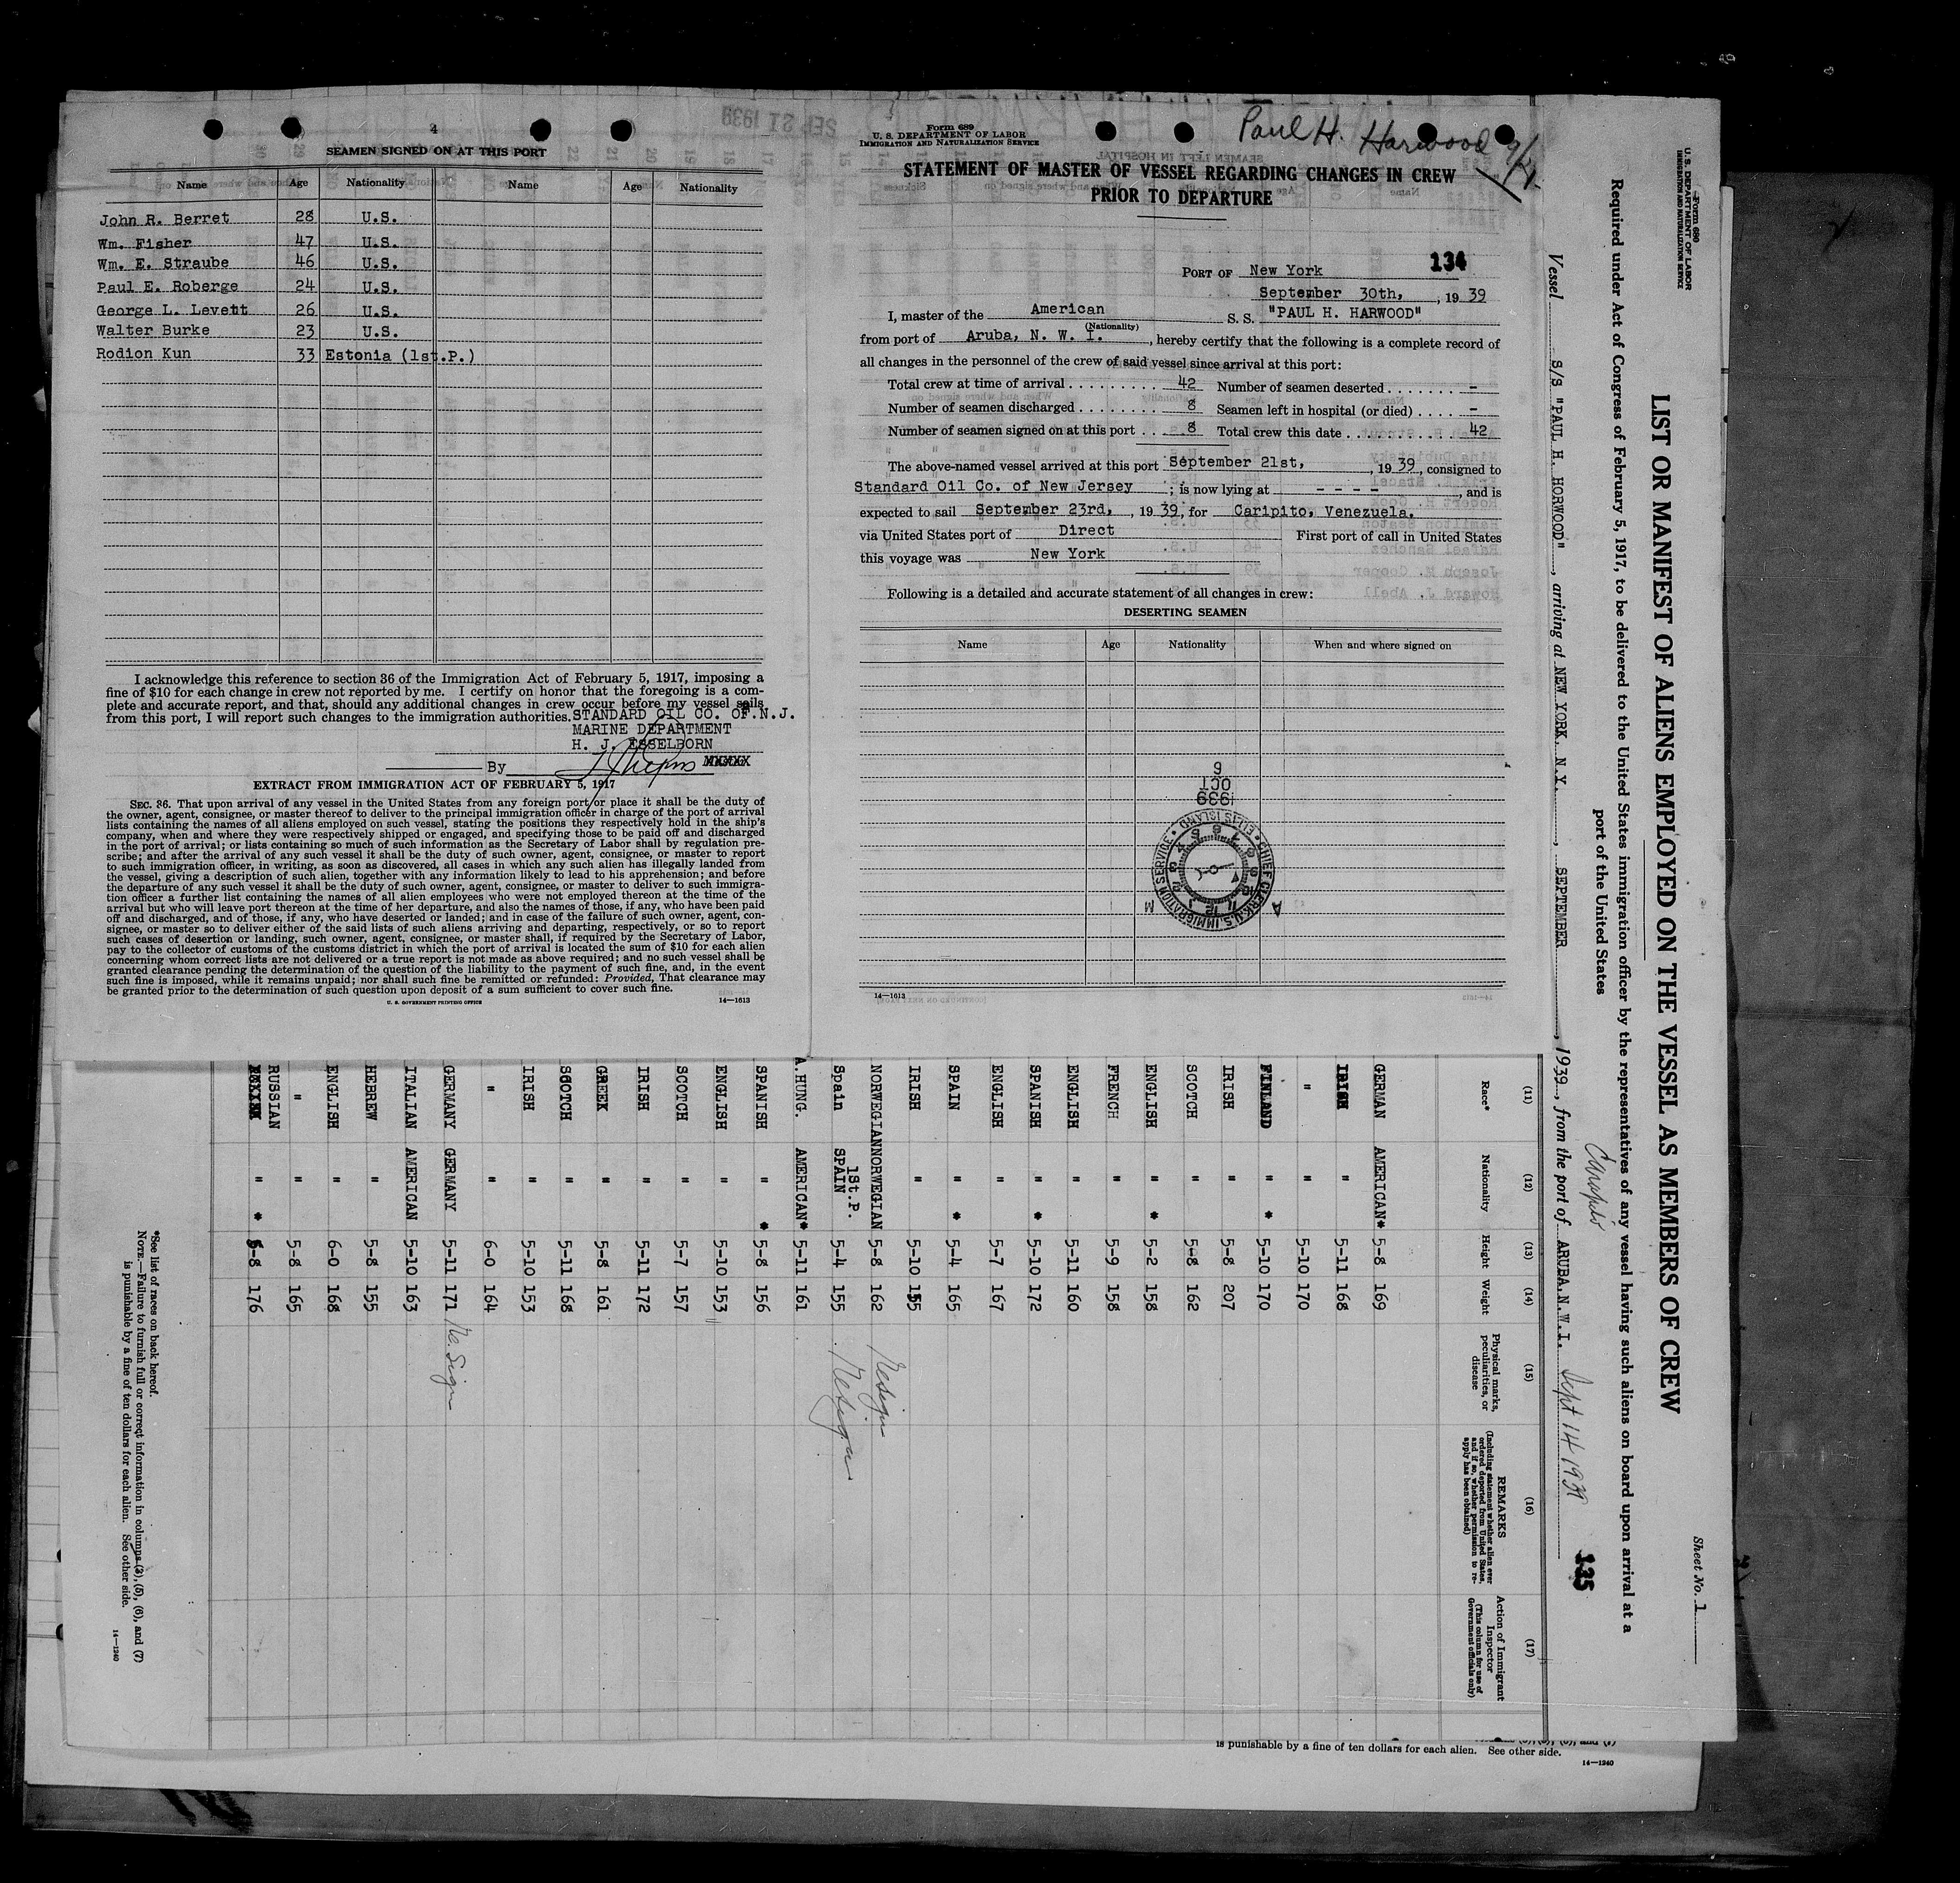 4
SEAMEN SIGNED ON AT THIS PORT
Name Age Nationality Name Age Nationality
John R. Berret 28 U.S.
Wm. Fisher 47 U.S.
Wm. E. Straube 46 U.S.
Paul E. Roberge 24 U.S.
George L. Levett 26 U.S.
Walter Burke 23 U.S.
Rodion Kun 33 Estonia (1st.P.)
I acknowledge this reference to section 36 of the Immigration Act of February 5, 1917, imposing a
fine of $10 for each change in crew not reported by me. I certify on honor that the foregoing is a com-
plete and accurate report, and that, should any additional changes in crew occur before my vessel sails
from this port, I will report such changes to the immigration authorities.
STANDARD OIL CO. OF.N.J.
MARINE DEPARTMENT
H. J. ESSELBORN
By
EXTRACT FROM IMMIGRATION ACT OF FEBRUARY 5, 1917
SEC. 36. That upon arrival of any vessel in the United States from any foreign port or place it shall be the duty of
the owner, agent, consignee, or master thereof to deliver to the principal immigration officer in charge of the port of arrival
lists containing the names of all aliens employed on such vessel, stating the positions they respectively hold in the ship's
company, when and where they were respectively shipped or engaged, and specifying those to be paid off and discharged
in the port of arrival; or lists containing so much of such information as the Secretary of Labor shall by regulation pre-
scribe; and after the arrival of any such vessel it shall be the duty of such owner, agent, consignee, or master to report
to such immigration officer, in writing, as soon as discovered, all cases in which any such alien has illegally landed from
the vessel, giving a description of such alien, together with any information likely to lead to his apprehension; and before
the departure of any such vessel it shall be the duty of such owner, agent, consignee, or master to deliver to such immigra-
tion officer a further list containing the names of all alien employees who were not employed thereon at the time of the
arrival but who will leave port thereon at the time of her departure, and also the names of those, if any, who have been paid
off and discharged, and of those, if any, who have deserted or landed; and in case of the failure of such owner, agent, con-
signee, or master so to deliver either of the said lists of such aliens arriving and departing, respectively, or so to report
such cases of desertion or landing, such owner, agent, consignee, or master shall, if required by the Secretary of Labor,
pay to the collector of customs of the customs district in which the port of arrival is located the sum of $10 for each alien
concerning whom correct lists are not delivered or a true report is not made as above required; and no such vessel shall be
granted clearance pending the determination of the question of the liability to the payment of such fine, and, in the event
such fine is imposed, while it remains unpaid; nor shall such fine be remitted or refunded: Provided, That clearance may
be granted prior to the determination of such question upon deposit of a sum sufficient to cover such fine.
U. S. GOVERNMENT PRINTING OFFICE 14—1613
Form 689
U. S. DEPARTMENT OF LABOR
IMMIGRATION AND NATURALIZATION SERVICE
Paul H. Harwood 9/21
STATEMENT OF MASTER OF VESSEL REGARDING CHANGES IN CREW
PRIOR TO DEPARTURE
134
PORT OF New York
September 30th, , 19 39
I, master of the American S. S. "PAUL H. HARWOOD"
(Nationality)
from port of Aruba, N. W. I. , hereby certify that the following is a complete record of
all changes in the personnel of the crew of said vessel since arrival at this port:
Total crew at time of arrival 42 Number of seamen deserted -
Number of seamen discharged 8 Seamen left in hospital (or died) -
Number of seamen signed on at this port 8 Total crew this date 42
The above-named vessel arrived at this port September 21st, , 19 39, consigned to
Standard Oil Co. of New Jersey ; is now lying at - - - - , and is
expected to sail September 23rd, , 19 39, for Caripito, Venezuela.
via United States port of Direct First port of call in United States
this voyage was New York
Following is a detailed and accurate statement of all changes in crew:
DESERTING SEAMEN
Name Age Nationality When and where signed on
1939
OCT
6
CHIEF CLERK U.S. IMMIGRATION SERVICE
ELLIS ISLAND
14—1613
Form 680
U. S. DEPARTMENT OF LABOR
IMMIGRATION AND NATURALIZATION SERVICE
Sheet No. 1
LIST OR MANIFEST OF ALIENS EMPLOYED ON THE VESSEL AS MEMBERS OF CREW
Required under Act of Congress of February 5, 1917, to be delivered to the United States immigration officer by the representatives of any vessel having such aliens on board upon arrival at a
port of the United States
135
Vessel S/S "PAUL H. HORWOOD" , arriving at NEW YORK, N.Y. , SEPTEMBER , 1939, from the port of ARUBA.N.W.I. Sept 14 1939
(11) (12) (13) (14) (15) (16) (17)
Race* Nationality Height Weight Physical marks, peculiarities, or disease
REMARKS
(Including statement whether alien ever ordered deported from United States, and if so, whether permission to re-apply has been obtained)
Action of Immigrant Inspector
(This column for use of Government officials only)
GERMAN AMERICAN* 5-8 169
IRISH " 5-11 168
" " 5-10 170
FINLAND " * 5-10 170
IRISH " 5-8 207
SCOTCH " 5-8 162
ENGLISH " * 5-2 158
FRENCH " 5-9 158
ENGLISH " 5-11 160
SPANISH " * 5-10 172
ENGLISH " 5-7 167
SPAIN " * 5-4 165
IRISH " 5-10 155
NORWEGIAN NORWEGIAN 5-8 162 Resign
Spain 1St.P. SPAIN 5-4 155 Resign
A.HUNG. AMERICAN* 5-11 161
SPANISH " * 5-8 156
ENGLISH " 5-10 153
SCOTCH " 5-7 157
IRISH " 5-11 172
GREEK " 5-8 161
SCOTCH " 5-11 168
IRISH " 5-10 153
" " 6-0 164
GERMANY GERMANY 5-11 171 Re. Sign
ITALIAN AMERICAN 5-10 163
HEBREW " 5-8 155
ENGLISH " 6-0 168
" " 5-8 165
RUSSIAN " * 5-8 176
*See list of races on back hereof.
NOTE.—Failure to furnish full or correct information in columns (3), (5), (6), and (7)
is punishable by a fine of ten dollars for each alien. See other side.
14—1240
is punishable by a fine of ten dollars for each alien. See other side.
14—1240